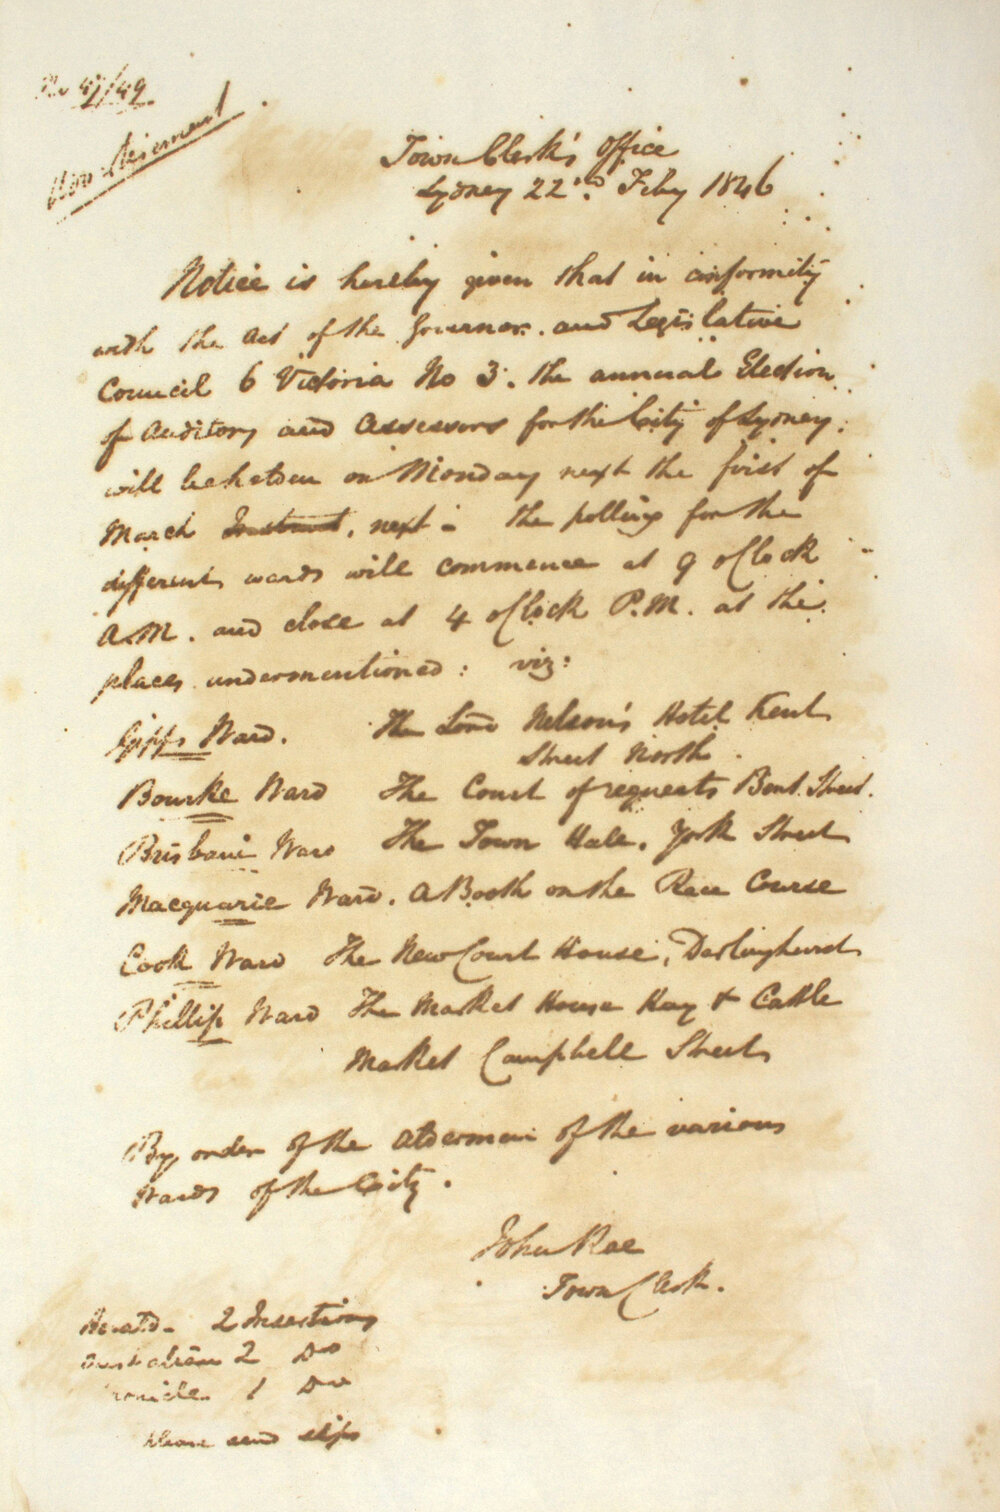 No 47/49
Advertisement
Town Clerk's Office
Sydney 22nd. Feby 1846
Notice is hereby given that in conformity
with the Act of the Governor. and Legislative
Council 6 Victoria No 3. the annual Election
of Auditors and Assessors for the City of Sydney.
will be holden on Monday next the first of
March Instant, next - the polling for the
different wards will commence at 9 oClock
A.M. and close at 4 oClock P.M. at the
places undermentioned: viz:
Gipps Ward. The Lord Nelson's Hotel Kent
Street North.
Bourke Ward The Court of requests Bent Street.
Brisbane Ward The Town Hall. York Street
Macquarie Ward. A Booth on the Race Course
Cook Ward The New Court House, Darlinghurst
Phillip Ward The Market House Hay & Cattle
Market Campbell Street
By order of the Aldermen of the various
Wards of the City.
John Rae
Town Clerk.
Herald - 2 Insertions
Australian 2 Do
Chronicle 1 Do
please send slips